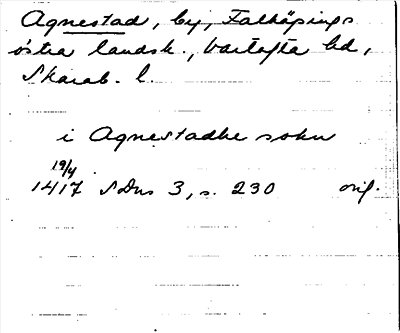 Agnestad, by, Falköpings
östra landsk., Vartofta hd,
Skarab. l.
i Agnestadhe sokn
19/4
1417 SDns 3, s. 230 orig.